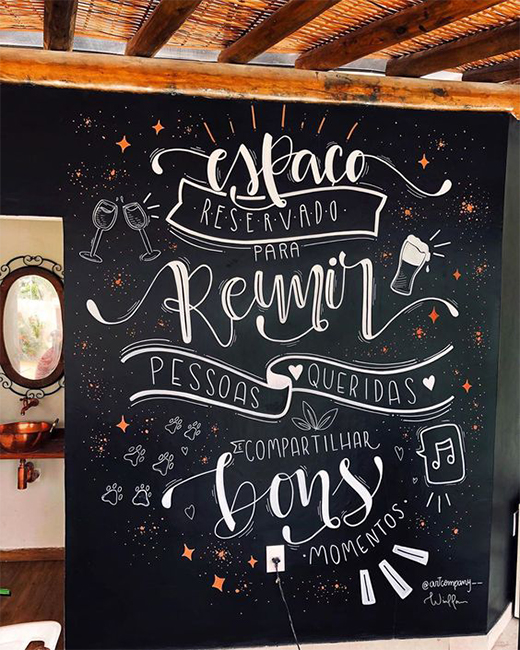 espaço
RESERVADO
PARA
Reunir
PESSOAS QUERIDAS
E COMPARTILHAR
bons
MOMENTOS.
@artcompany__